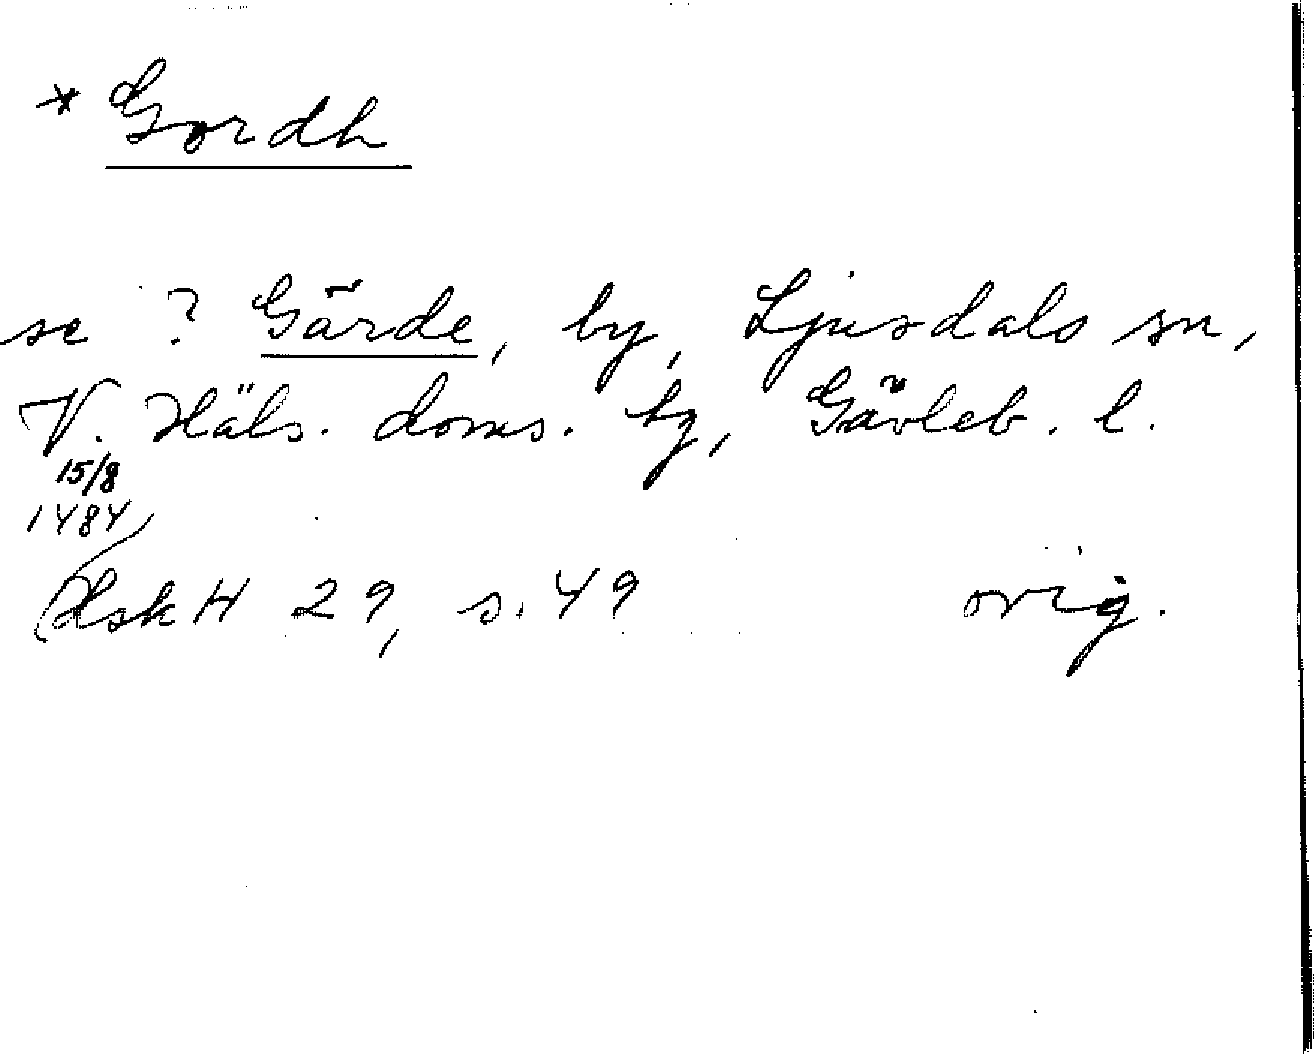 * Gordh
se ? Gärde, by, Ljusdals sn,
V. Häls. doms. hg, Gävleb. l.
15/8
1484
HskH 29, s. 49 orig.